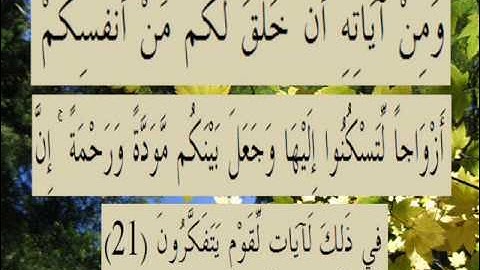 وَمِنْ آيَاتِهِ أَنْ خَلَقَ لَكُم مِّنْ أَنفُسِكُمْ
أَزْوَاجاً لِّتَسْكُنُوا إِلَيْهَا وَجَعَلَ بَيْنَكُم مَّوَدَّةً وَرَحْمَةً ۚ إِنَّ
فِي ذَلِكَ لَآيَات لِّقَوْمٍ يَتَفَكَّرُونَ (21)